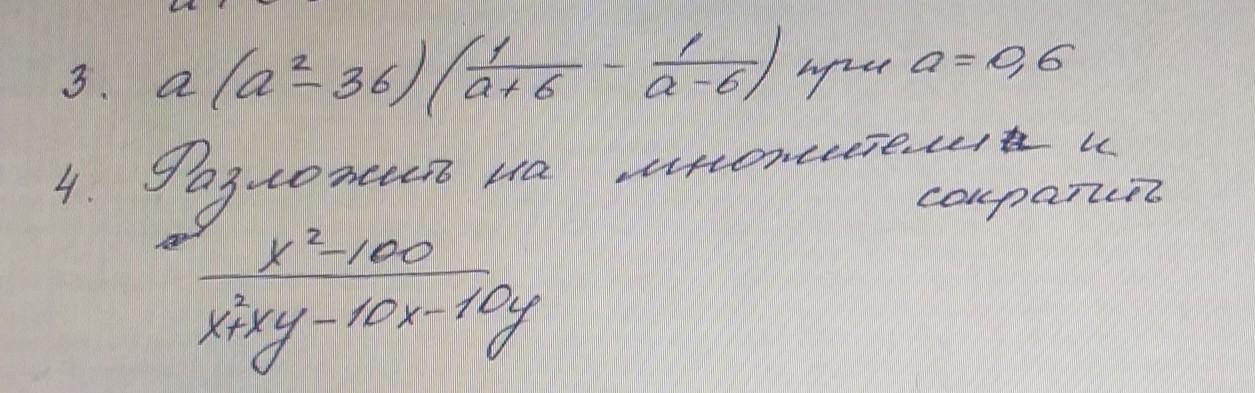 3. a(a²-36)(1/(a+6) - 1/(a-6)) при a=0,6
4. Разложить на множители и
сократить
x²-100
x²+xy-10x-10y